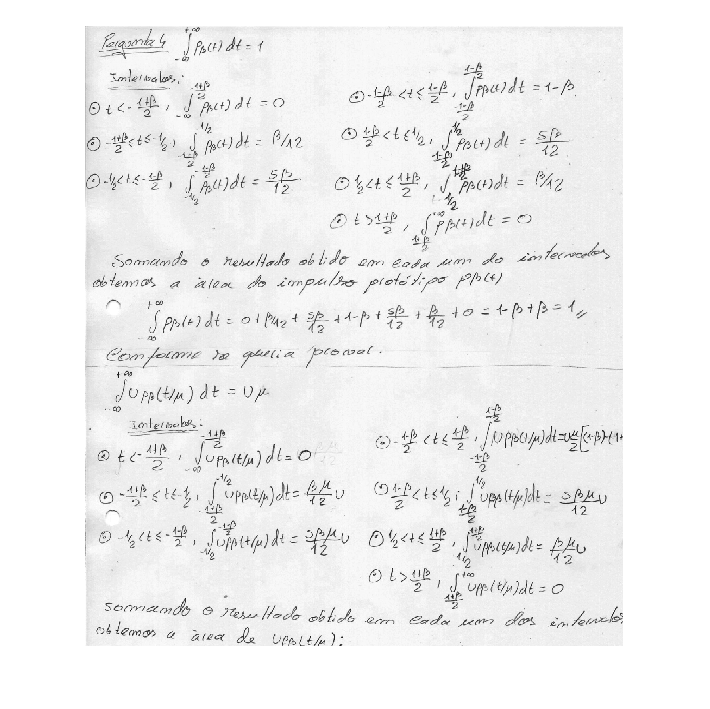 Pergunta 4 ∫_{-∞}^{+∞} pβ(t) dt = 1
Intervalos:
⊙ t < -(1+β)/2, ∫_{-∞}^{-(1+β)/2} pβ(t) dt = 0
⊙ -(1+β)/2 < t ≤ -1/2, ∫_{-(1+β)/2}^{-1/2} pβ(t) dt = β/12
⊙ -1/2 < t ≤ -(1-β)/2, ∫_{-1/2}^{-(1-β)/2} pβ(t) dt = 5β/12
⊙ -(1-β)/2 < t ≤ (1-β)/2, ∫_{-(1-β)/2}^{(1-β)/2} pβ(t) dt = 1-β
⊙ (1-β)/2 < t ≤ 1/2, ∫_{(1-β)/2}^{1/2} pβ(t) dt = 5β/12
⊙ 1/2 < t ≤ (1+β)/2, ∫_{1/2}^{(1+β)/2} pβ(t) dt = β/12
⊙ t > (1+β)/2, ∫_{(1+β)/2}^{+∞} pβ(t) dt = 0
Somando o resultado obtido em cada um do intervalos
obtemos a área do impulso protótipo pβ(t)
∫_{-∞}^{+∞} pβ(t) dt = 0 + β/12 + 5β/12 + 1-β + 5β/12 + β/12 + 0 = 1-β+β = 1,,
Conforme se queria provar.
∫_{-∞}^{+∞} Upβ(t/μ) dt = Uμ
Intervalos:
⊙ t < -(1+β)/2, ∫_{-∞}^{-(1+β)/2} Upβ(t/μ) dt = 0
⊙ -(1+β)/2 ≤ t ≤ -1/2, ∫_{-(1+β)/2}^{-1/2} Upβ(t/μ) dt = βμ/12 U
⊙ -1/2 < t ≤ -(1-β)/2, ∫_{-1/2}^{-(1-β)/2} Upβ(t/μ) dt = 5βμ/12 U
⊙ -(1-β)/2 < t ≤ (1-β)/2, ∫_{-(1-β)/2}^{(1-β)/2} Upβ(t/μ) dt = Uμ/2[(1-β)+(1-
⊙ (1-β)/2 < t ≤ 1/2, ∫_{(1-β)/2}^{1/2} Upβ(t/μ) dt = 5βμ/12 U
⊙ 1/2 < t ≤ (1+β)/2, ∫_{1/2}^{(1+β)/2} Upβ(t/μ) dt = βμ/12 U
⊙ t > (1+β)/2, ∫_{(1+β)/2}^{+∞} Upβ(t/μ) dt = 0
somando o resultado obtido em cada um dos intervalos
obtemos a área de Upβ(t/μ):